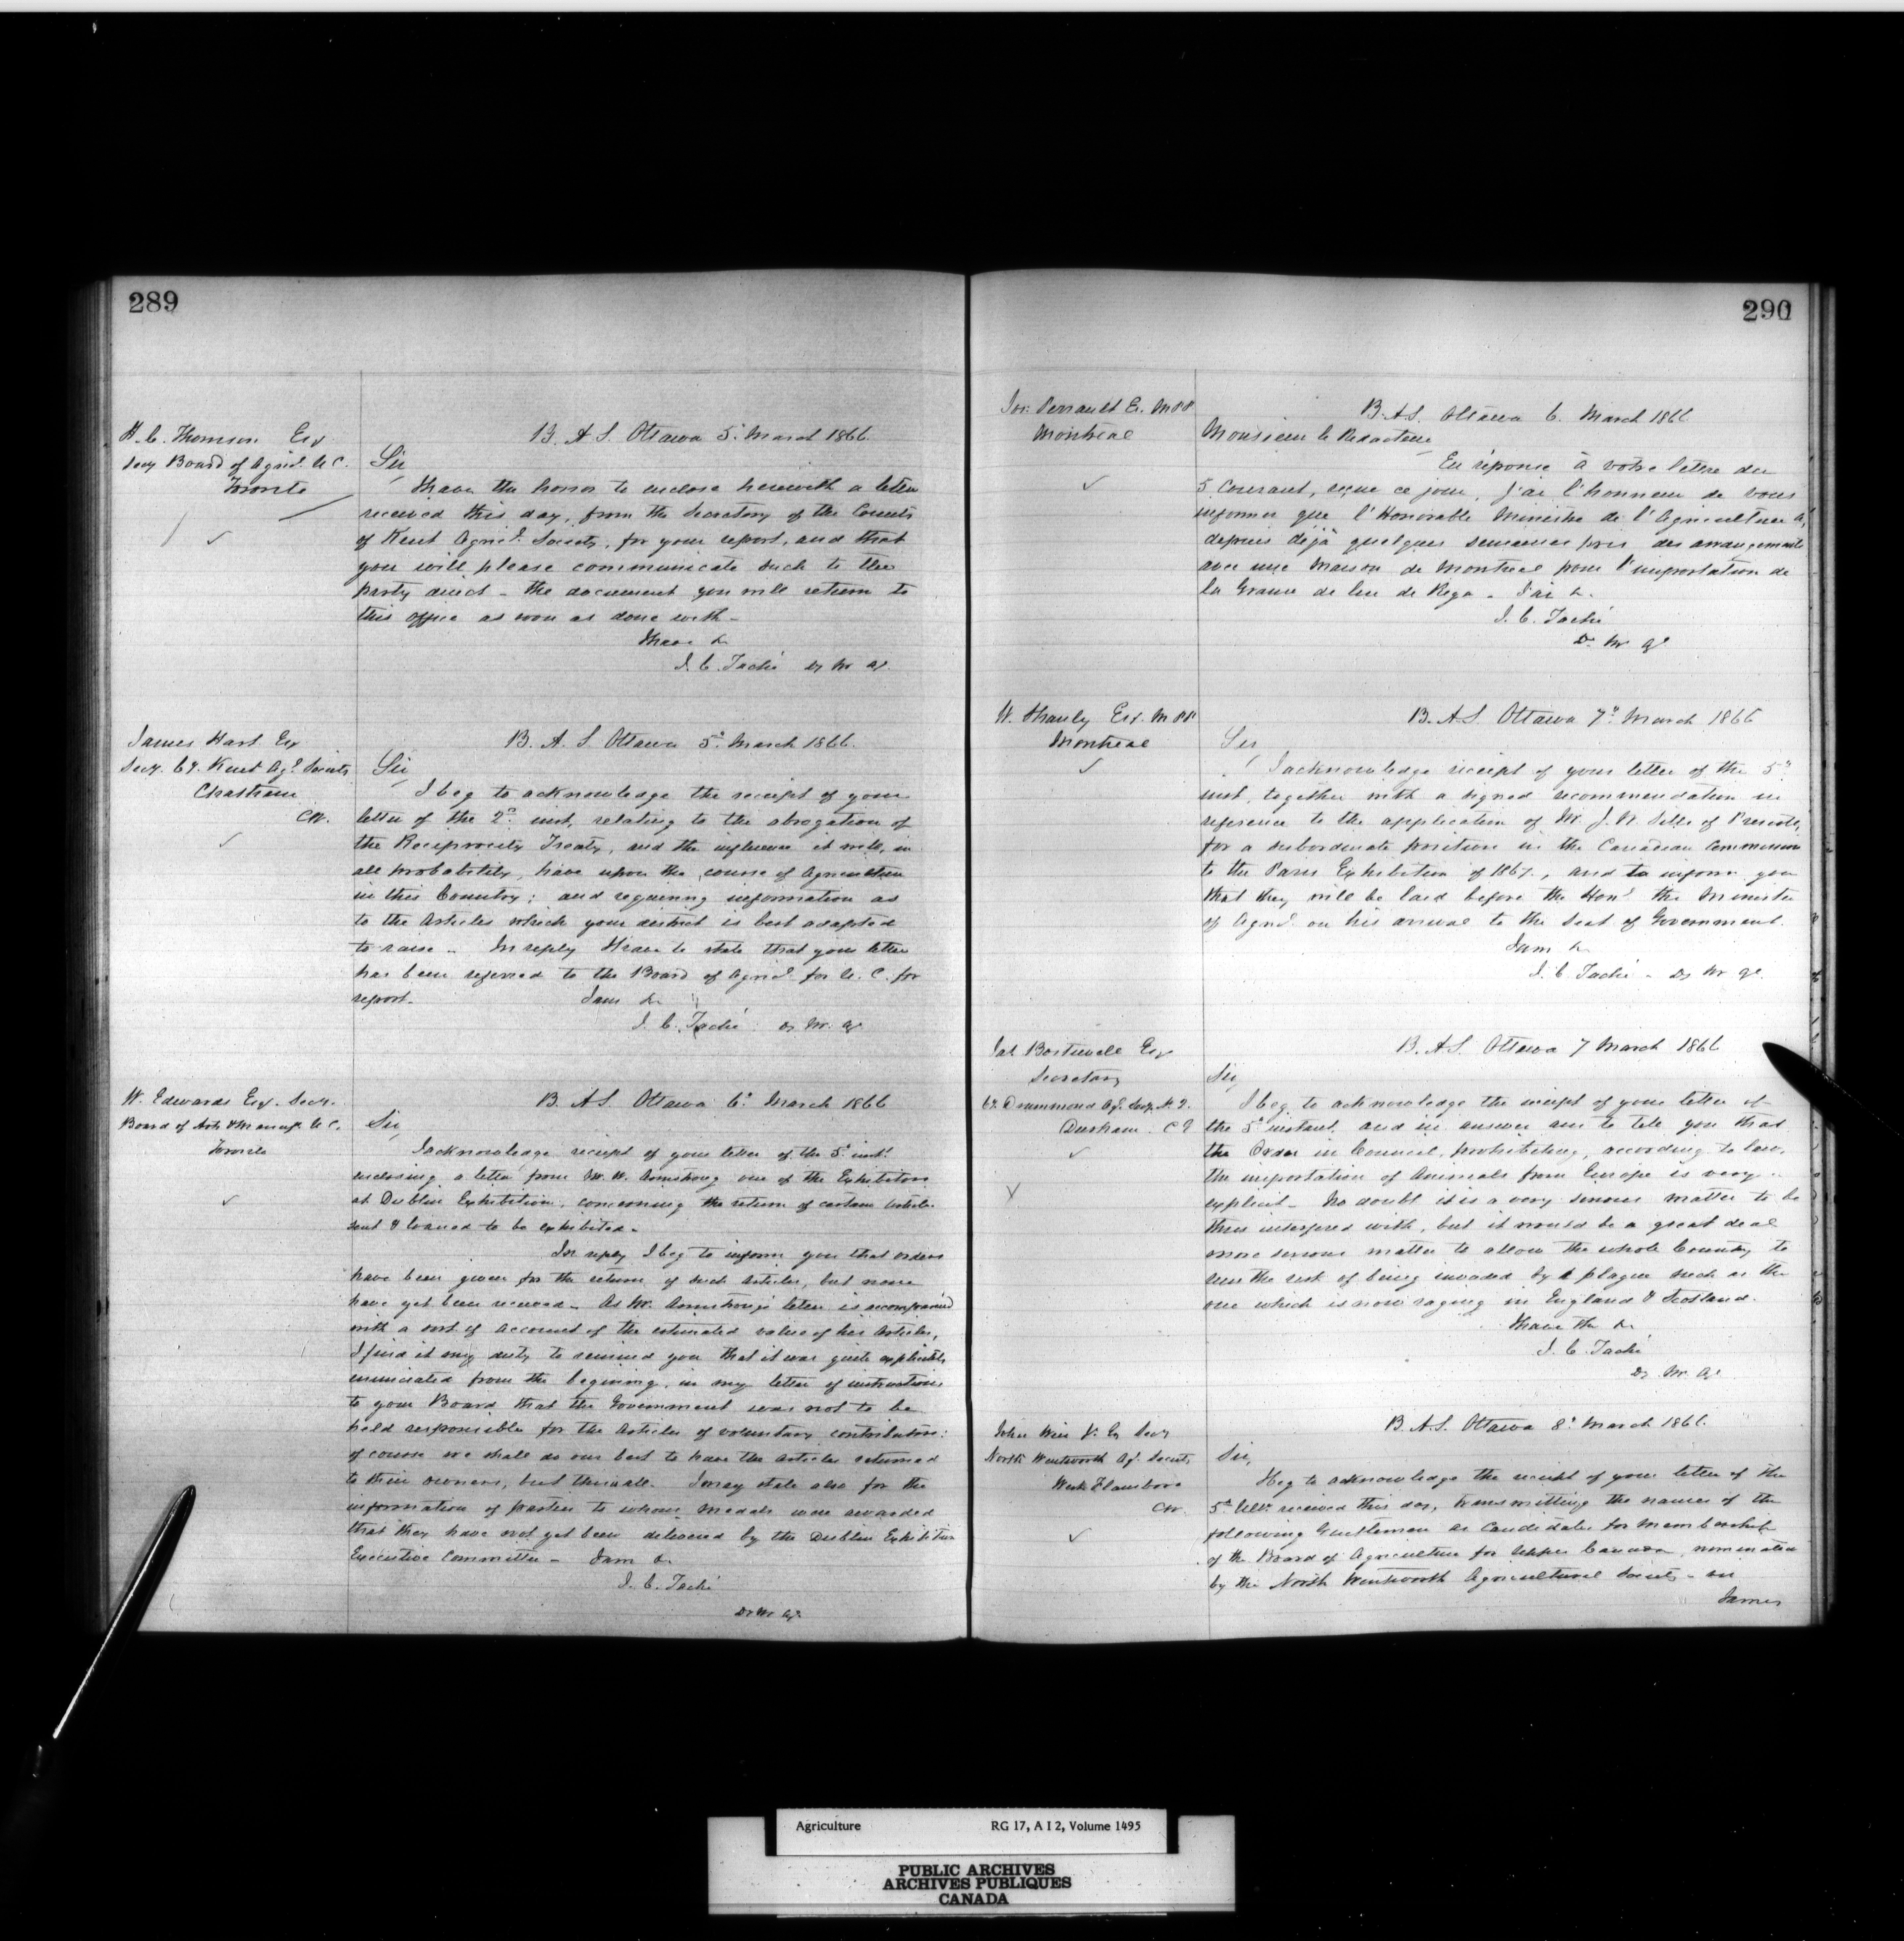 289
H. C. Thomson Esq
Secy Board of Agricl. U C.
Toronto
B. A. S. Ottawa 5th March 1866.
Sir,
I have the honor to enclose herewith a letter
received this day, from the Secretary of the County
of Kent Agricl. Society, for your report, and that
you will please communicate such to the
party direct - the document you will return to
this office as soon as done with -
I have &
J. C. Taché Dy M. Ag.
James Hart Esq
Secy. Cy. Kent Agl. Society
Chatham
CW.
B. A. S Ottawa 5th March 1866.
Sir,
I beg to acknowledge the receipt of your
letter of the 2d inst, relating to the abrogation of
the Reciprocity Treaty, and the influence it will, in
all probability, have upon the course of Agriculture
in this Country; and requiring information as
to the Articles which your district is best adapted
to raise - In reply I have to state that your letter
has been referred to the Board of Agricl. for U. C. for
report. I am &
J. C. Taché Dy M. Ag
W. Edwards Esq. Secy.
Board of Arts & Manufs U C.
Toronto
B. A S. Ottawa 6th March 1866
Sir,
I acknowledge receipt of your letter of the 5th inst.
enclosing a letter from Mr. W. Armstrong one of the Exhibitors
at Dublin Exhibition, concerning the return of certain Articles
sent & loaned to be exhibited -
In reply I beg to inform you that orders
have been given for the return of such Articles, but none
have yet been received - As Mr. Armstrong's letter is accompanied
with a sort of account of the estimated value of his Articles,
I find it my duty to remind you that it was quite explicitly
enunciated from the begining, in my letter of instructions
to your Board that the Government was not to be
held responsible for the Articles of voluntary contributors:
of course we shall do our best to have the Articles returned
to their owners, but this is all. I may state also for the
information of parties to whom Medals were awarded
that they have not yet been delivered by the Dublin Exhibition
Executive Committee - I am &.
J. C. Taché
Dy M Ag.
290
Jos: Perrault E. M P P
Montreal
B. A S. Ottawa 6. March 1866
Monsieur le Rédacteur
En réponse à votre lettre du
5 Courant, reçue ce jour, j'ai l'honneur de vous
informer que l'Honorable Ministre de l'Agriculture a,
depuis déjà quelques semaines pris des arrangements
avec une Maison de Montreal pour l'importation de
la Graine de lin de Riga - J'ai &.
J. C. Taché
Dy M Ag
W. Shanly Esq. M P P
Montreal
B. A S Ottawa 7th March 1866
Sir,
I acknowledge receipt of your letter of the 5th
inst, together with a signed recommendation in
reference to the application of Mr. J. of Prescott,
for a subordinate position in the Canadian Commission
to the Paris Exhibition of 1867, and to inform you
that they will be laid before the Honl. the Minister
of Agricl. on his arrival to the Seat of Government.
I am &
J. C. Taché - Dy M Ag.
Esq
Secretary
Cy. Drummond Agl. Socy. N. 2.
Durham. C E
B. A S. Ottawa 7 March 1866
Sir,
I beg to acknowledge the receipt of your letter of
the 5th instant, and in answer am to tell you that
the Order in Council, prohibiting, according to law,
the importation of Animals from Europe is very
explicit - No doubt it is a very serious matter to be
thus interfered with, but it would be a great deal
more serious matter to allow the whole Country to
run the risk of being invaded by a plague such as the
one which is now raging in England & Scotland.
I have the &.
J. C. Taché
Dy M. Ag.
John Weir Jr. Esq Secy
North Wentworth Agl. Society
West Flamboro
CW.
B. A. S. Ottawa 8th March 1866.
Sir,
I beg to acknowledge the receipt of your letter of the
5th Ulto. received this day, transmitting the names of the
following Gentlemen as Candidates for Membership
of the Board of Agriculture for Upper Canada, nominated
by the North Wentworth Agricultural Society -
James
Agriculture RG 17, A I 2, Volume 1495
PUBLIC ARCHIVES
ARCHIVES PUBLIQUES
CANADA